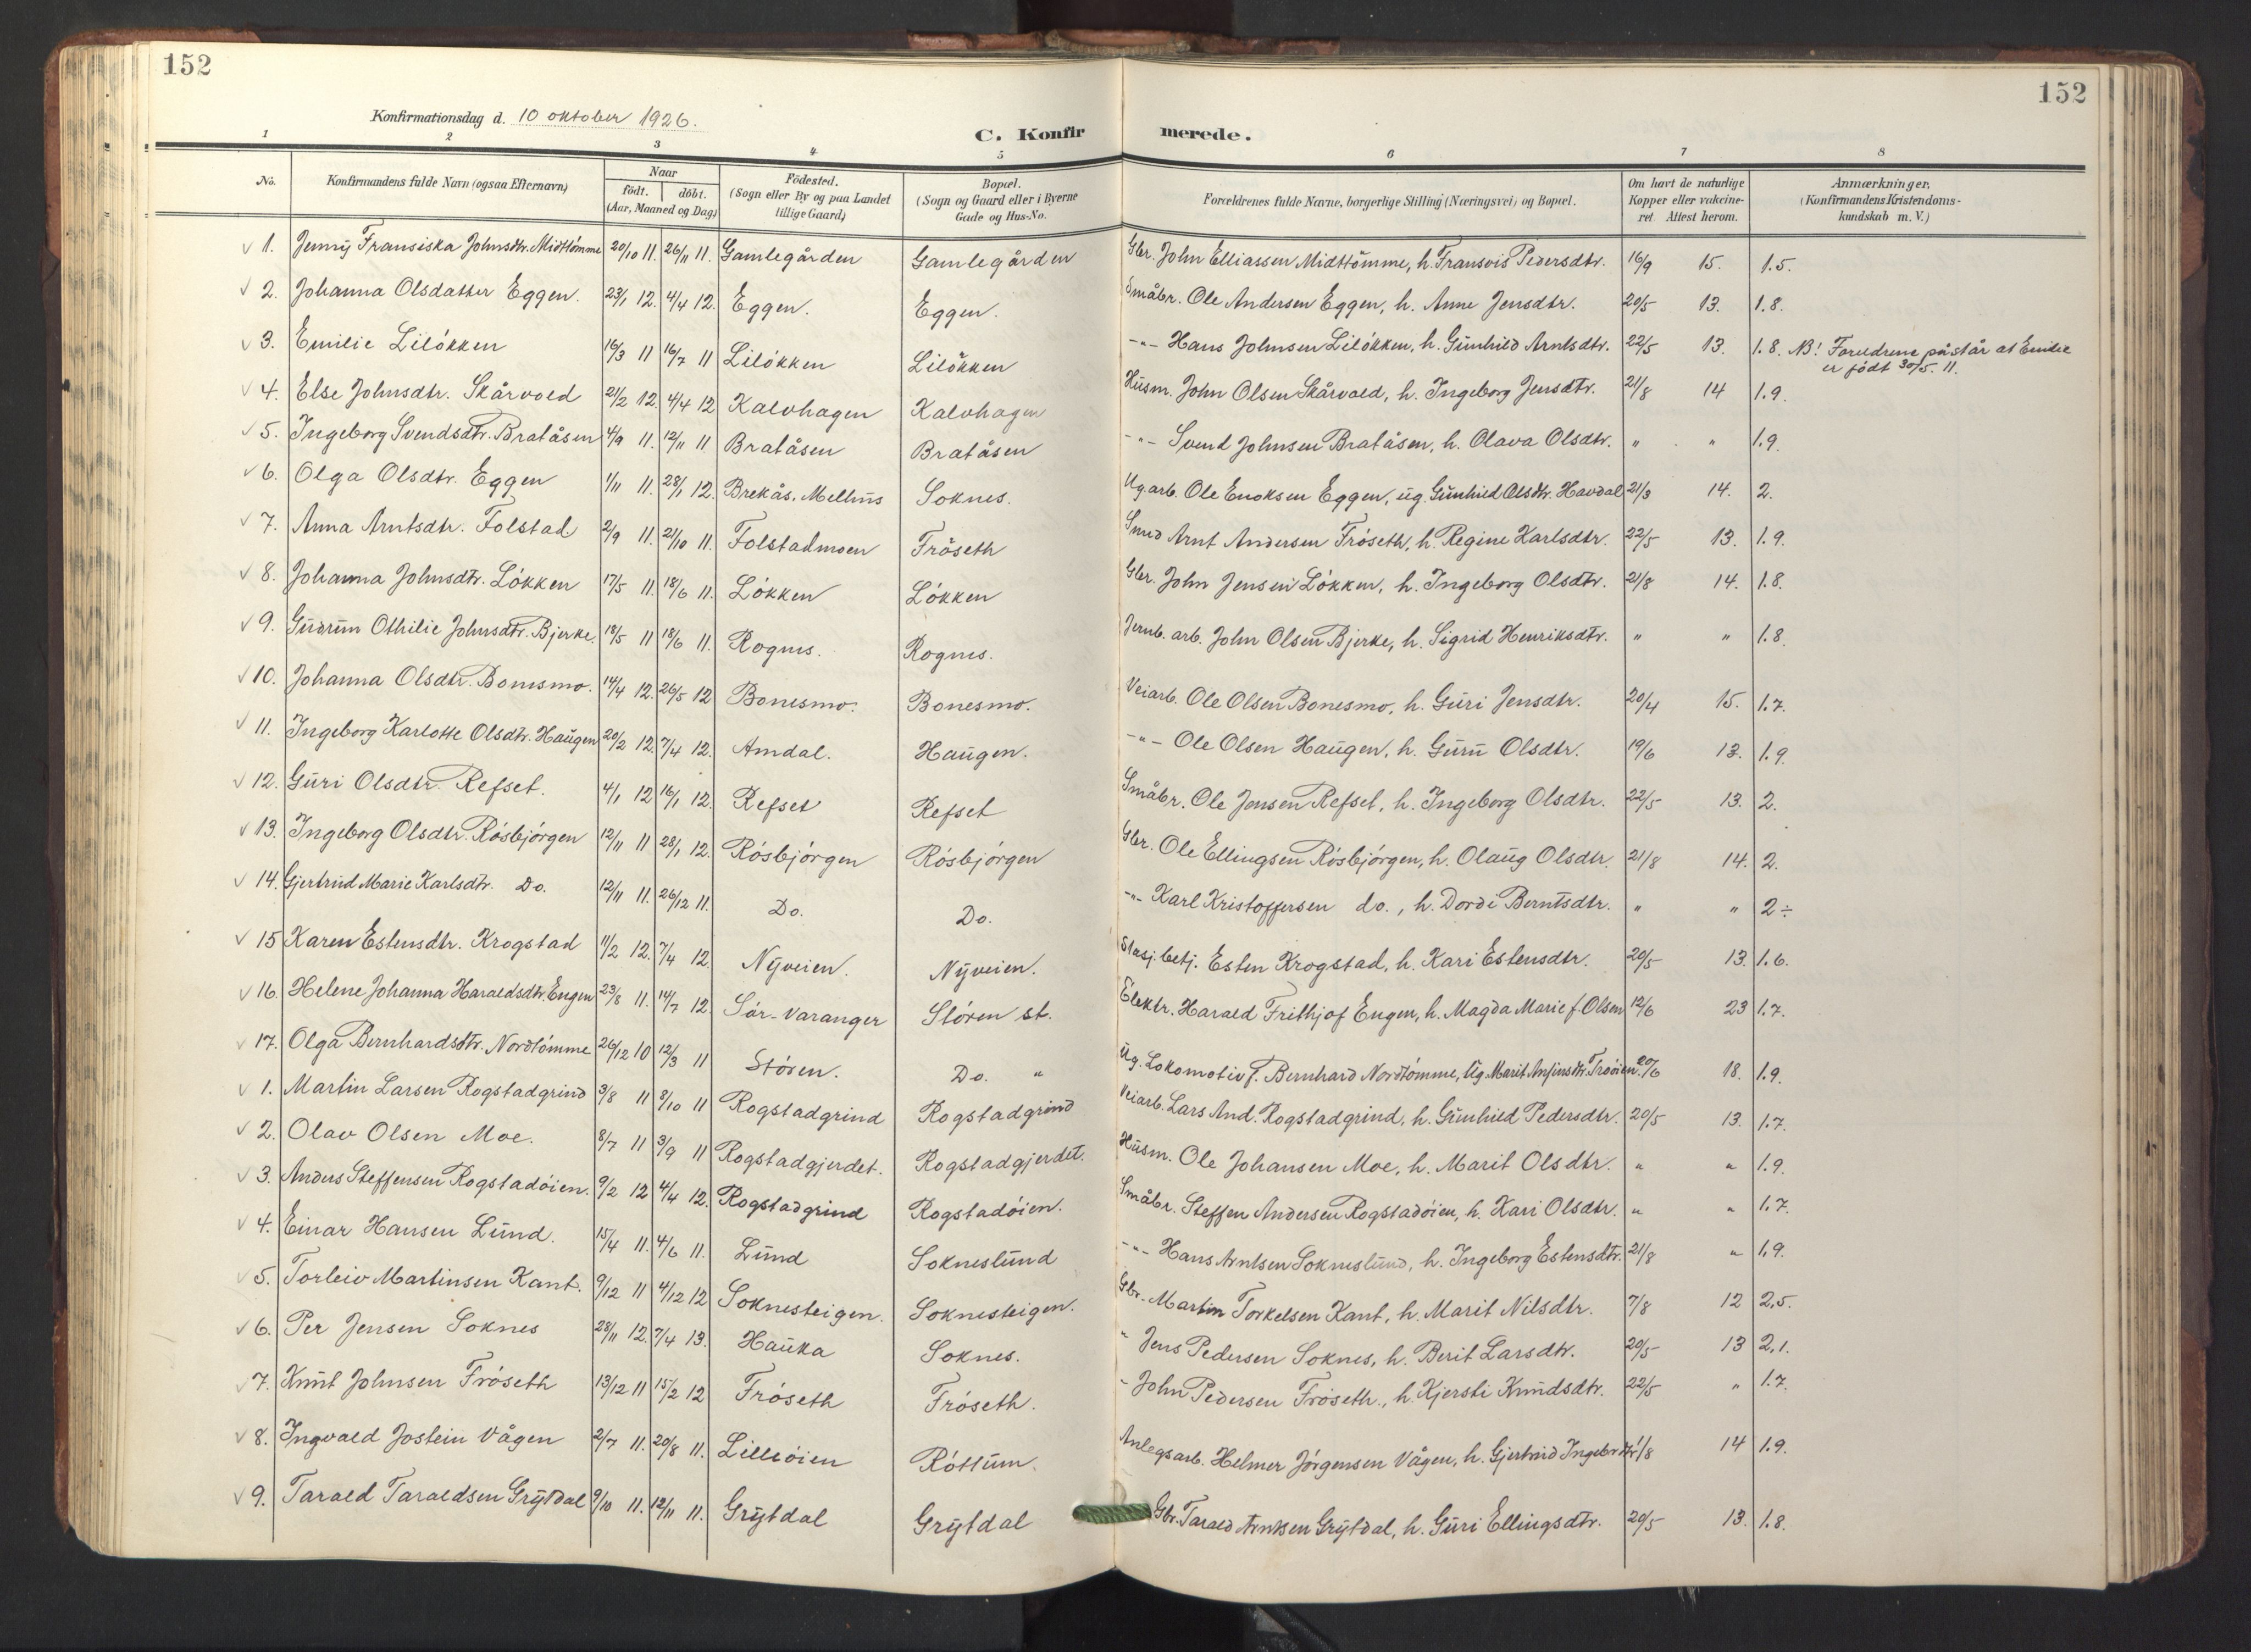 152
152
Konfirmationsdag d. 10 oktober 1926.
C. Konfirmerede.
1 2 3 4 5 6 7 8
No. Konfirmandens fulde Navn (ogsaa Efternavn) Naar födt. döbt. (Aar, Maaned og Dag) Födested. (Sogn eller By og paa Landet tillige Gaard) Bopæl. (Sogn og Gaard eller i Byerne Gade og Hus-No. Forældrenes fulde Navne, borgerlige Stilling (Næringsvei) og Bopæl. Om havt de naturlige Kopper eller vakcineret Attest herom. Anmærkninger, (Konfirmandens Kristendomskundskab m. V.)
1. Jenny Fransiska Johnsdtr. Midttömme 20/10 11. 26/11 11. Gamlegården Gamlegården Gbr. John Elliassen Midttömme, h. Fransois Pedersdtr. 16/9 15. 1.5.
2. Johanna Olsdatter Eggen. 23/1 12. 4/4 12. Eggen. Eggen. Småbr. Ole Andersen Eggen, h. Anne Jensdtr. 20/5 13. 1.8.
3. Emilie Lilökken 16/3 11 16/7 11 Lilökken Lilökken -"- Hans Johnsen Lilökken, h. Gunhild Arntsdtr. 22/5 13. 1.8. NB! Foreldrene påstår at Emilie er født 30/5. 11.
4. Else Johnsdtr. Skårvold 21/2 12. 4/4 12 Kalvhagen Kalvhagen Husm. John Olsen Skårvold, h. Ingeborg Jensdtr. 21/8 14 1.9.
5. Ingeborg Svendsdtr. Bratåsen 4/9 11. 12/11 11 Bratåsen Bratåsen -"- Svend Johnsen Bratåsen, h. Olava Olsdtr. " " 1.9.
6. Olga Olsdtr. Eggen 1/11 11. 28/1 12. Brekås, Melhus Soknes. Ug.arb. Ole Enoksen Eggen, ug. Gunhild Olsdtr. Havdal 21/3 14. 2.
7. Anna Arntsdtr. Folstad 2/9 11. 21/10 11. Folstadmoen Fröseth Smed Arnt Andersen Fröseth, h. Regine Karlsdtr. 22/5 13. 1.9.
8. Johanna Johnsdtr. Lökken 17/5 11. 18/6 11. Lökken Lökken Gbr. John Jensen Lökken, h. Ingeborg Olsdtr. 21/8 14. 1.8.
9. Gudrun Othilie Johnsdtr. Bjerke. 18/5 11 18/6 11. Rognes. Rognes. Jernb. arb. John Olsen Bjerke, h. Sigrid Henriksdtr. " " 1.8.
10. Johanna Olsdtr. Bonesmo. 14/4 12. 26/5 12 Bonesmo. Bonesmo. Veiarb. Ole Olsen Bonesmo, h. Guri Jensdtr. 20/4 15. 1.7.
11. Ingeborg Karlotte Olsdtr. Haugen 20/2 12. 7/4 12. Amdal. Haugen. -"- Ole Olsen Haugen, h. Guru Olsdtr. 19/6 13. 1.9.
12. Guri Olsdtr. Refset. 4/1 12 16/1 12. Refset Refset Småbr. Ole Jensen Refset, h. Ingeborg Olsdtr. 22/5 13. 2.
13. Ingeborg Olsdtr. Rösbjörgen 12/11 11 28/1 12. Rösbjörgen Rösbjörgen Gbr. Ole Ellingsen Rösbjörgen, h. Olaug Olsdtr. 21/8 14. 2.
14. Gjertrud Marie Karlsdtr. Do. 12/11 11. 26/12 11. Do. Do. -"- Karl Kristoffersen do., h. Dordi Berntsdtr. " " 2÷
15 Karen Estensdtr. Krogstad 11/2 12. 7/4 12. Nyveien. Nyveien. Stasj.betj. Esten Krogstad, h. Kari Estensdtr. 20/5 13. 1.6.
16. Helene Johanna Haraldsdtr. Engen 23/8 11. 14/7 12. Sör-Varanger Stören st. Elektr. Harald Frithjof Engen, h. Magda Marie f. Olsen 12/6 23 1.7.
17. Olga Bernhardsdtr. Nordtömme 26/12 10 12/3 11 Stören. Do. " Ug. Lokomotivf. Bernhard Nordtömme, Ug. Marit Anfinsdtr. Troöien. 20/6 18. 1.9.
1. Martin Larsen Rogstadgrind 3/8 11 8/10 11 Rogstadgrind Rogstadgrind Veiarb. Lars And. Rogstadgrind, h. Gunhild Pedersdtr. 20/5 13. 1.7.
2. Olav Olsen Moe. 8/7 11 3/9 11 Rogstadgjerdet. Rogstadgjerdet. Husm. Ole Johansen Moe, h. Marit Olsdtr. " " 1.9.
3. Anders Steffensen Rogstadöien. 9/2 12 4/4 12. Rogstadgrind Rogstadöien. Småbr. Steffen Andersen Rogstadöien, h. Kari Olsdtr. " " 1.7.
4. Einar Hansen Lund. 15/4 11. 4/6 11. Lund Sokneslund -"- Hans Arntsen Sokneslund, h. Ingeborg Estensdtr. 21/8 " 1.9.
5. Torleiv Martinsen Kant. 9/12 11 4/12 12 Soknesteigen. Soknesteigen. Gbr. Martin Torkelsen Kant, h. Marit Nilsdtr. 7/8 12 2,5.
6. Per Jensen Soknes 28/11 12. 7/4 13. Hauka Soknes. " Jens Pedersen Soknes, h. Berit Larsdtr. 20/5 13 2,1.
7. Knut Johnsen Fröseth 13/12 11 15/2 12 Fröseth Fröseth. - John Pedersen Fröseth, h. Kjersti Knudsdtr. 22/5 " 1.7.
8. Ingvald Jostein Vågen 2/7 11. 20/8 11. Lilleöien Röttum. Anlegsarb. Helmer Jörgensen Vågen, h. Gjertrud Ingebr.dtr. 1/8 14 1.9.
9. Tarald Taraldsen Grytdal 9/10 11. 12/11 11. Grytdal Grytdal Gbr. Tarald Arntsen Grytdal, h. Guri Ellingsdtr. 20/5 13. 1.8.